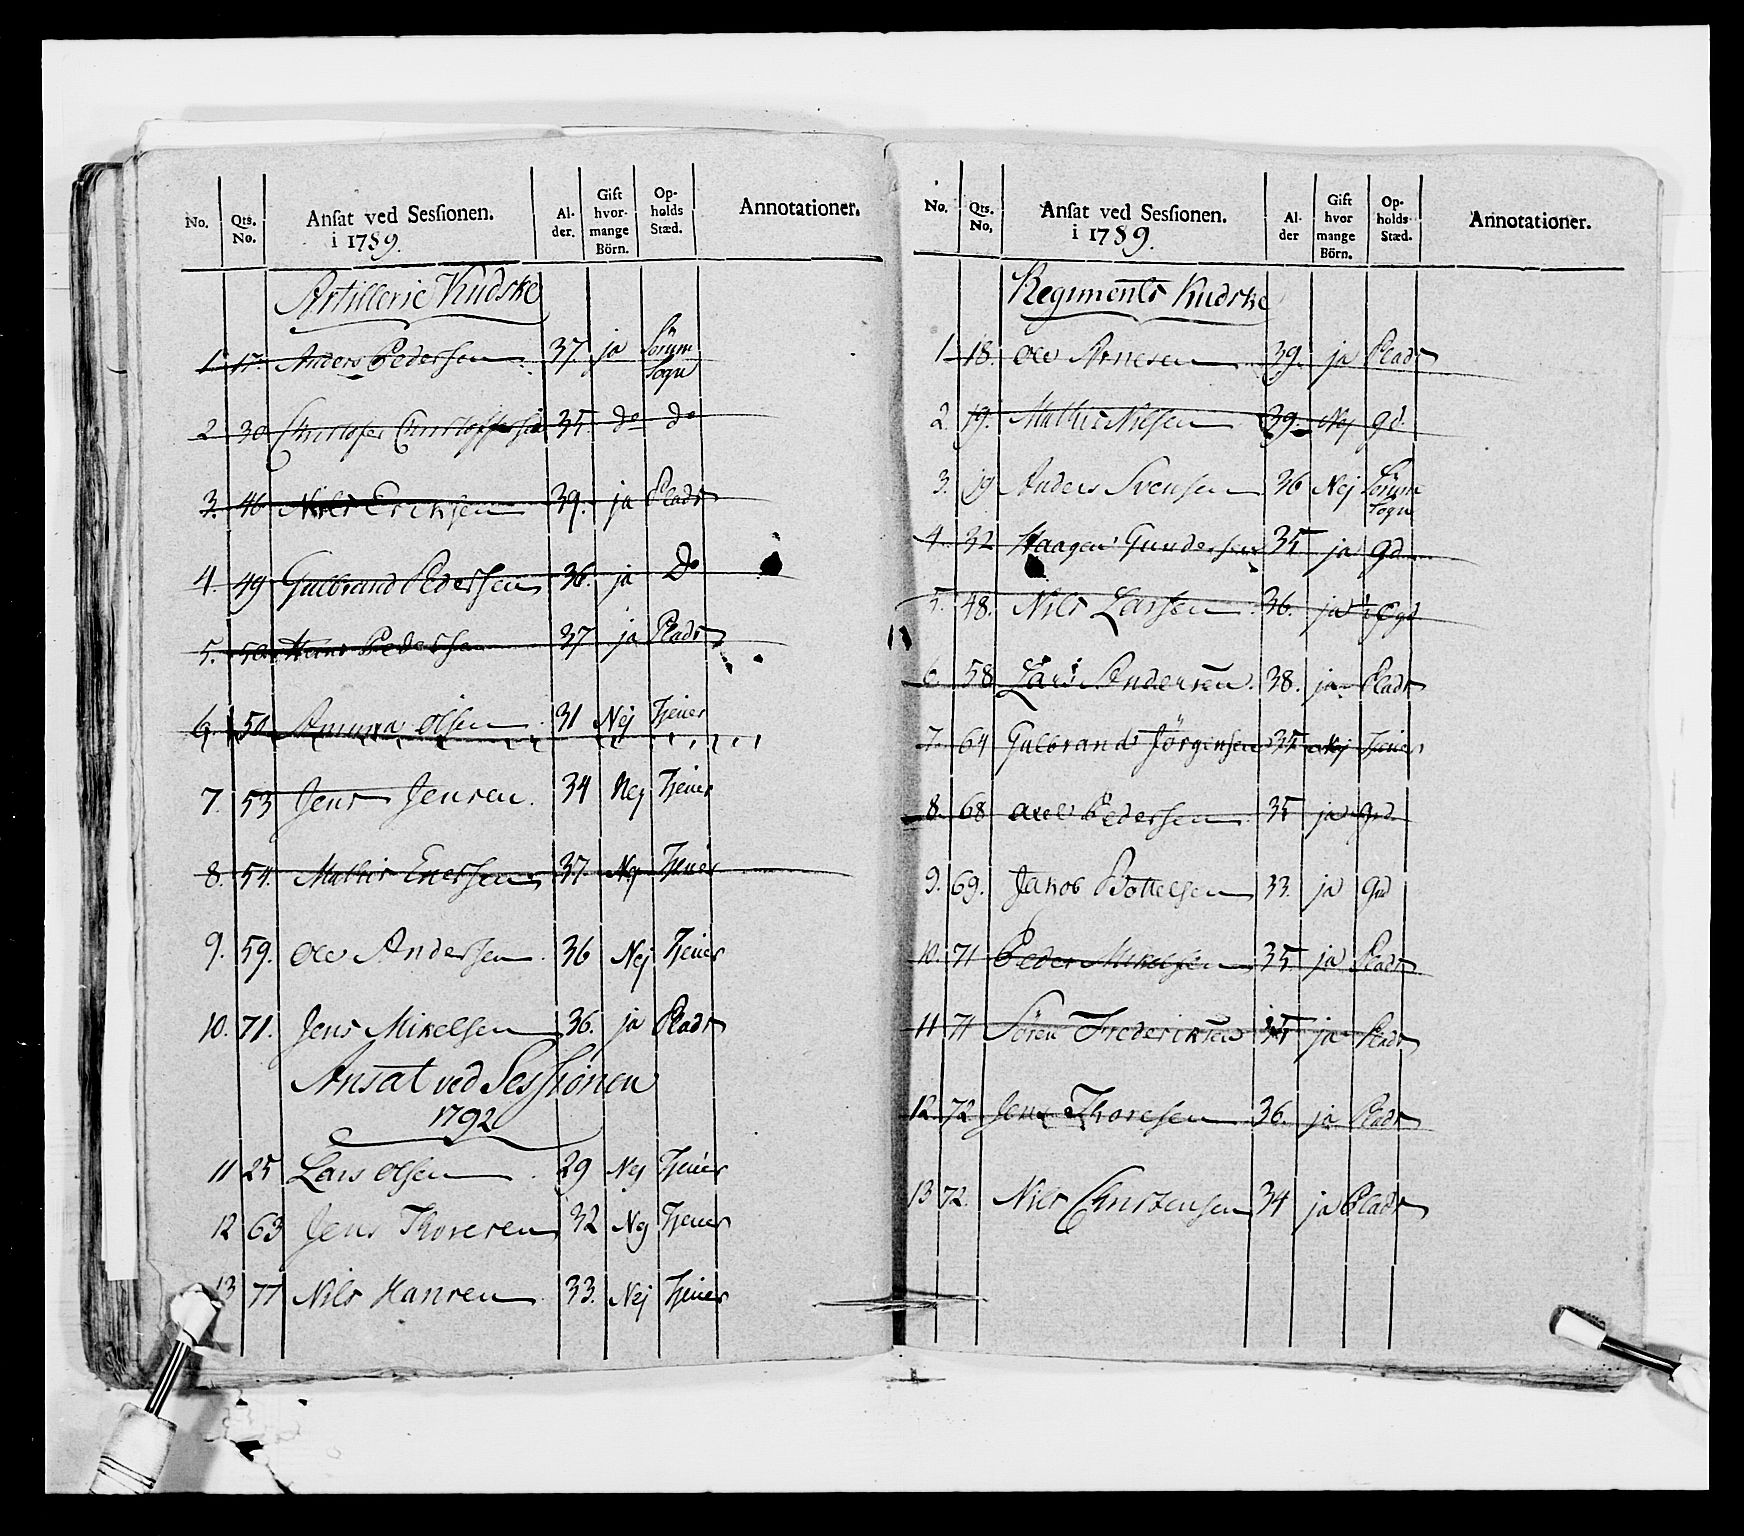 No. Qts. No. Ansat ved Sessionen. i 1789. Al- der. Gift hvor- mange Börn. Op- holds Stæd. Annotationer.
Artillerie Kudske
1. 17. Anders Pedersen 37. ja Sörum Sogn
2 30 Christofer Christoffersen 35 do do
3. 46 Nils Eriksen 39. ja Plads
4. 49 Gulbrand Pedersen 36. ja Do
5. 50 Hans Pedersen 37 ja Plads
6. 50 Olsen 31 Nej Tjener
7. 53 Jens Jensen. 34 Nej Tjener
8. 54. Mathis Enersen 37. Nej Tjener
9. 59. Ole Andersen 36 Nej Tjener
10. 71. Jens Mikelsen 36. ja Plads
Ansat ved Sessionen
1792
11 25 Lars Olsen 29 Nej Tjener
12 63 Jens Thoresen 32 Nej Tjener
13 71 Nils Hansen 33. Nej Tjener
No. Qts. No, Ansat ved Sessionen. i 1789. Al der Gift hvor mange Börn. Op- holds Stæd. Annotationer.
Regiments Kudske
1. 18. Ole Arnesen 39. ja Plads
2. 19. Mathis Nilsen 39. Nej gd.
3. 19 Anders Svensen 36 Nej Sörum Sogn
4. 32 Haagen Gundersen 35 ja gd
5. 48. Nils Larsen 36. ja
6. 58 Lars Andersen. 38. ja Plads
7. 64 Gulbrand Jörgensen 35 Nej Tjener
8. 68 Axel Pedersen 35 ja gd.
9. 69. Jakob Bottelsen 33. ja gd
10. 71 Peder Mikelsen 35 ja Plads
11 71 Sören Frederiksen 35 ja Plads
12. 72. Jens Thoresen 36. ja Plads
13 72. Nils Christensen 34 ja Plads